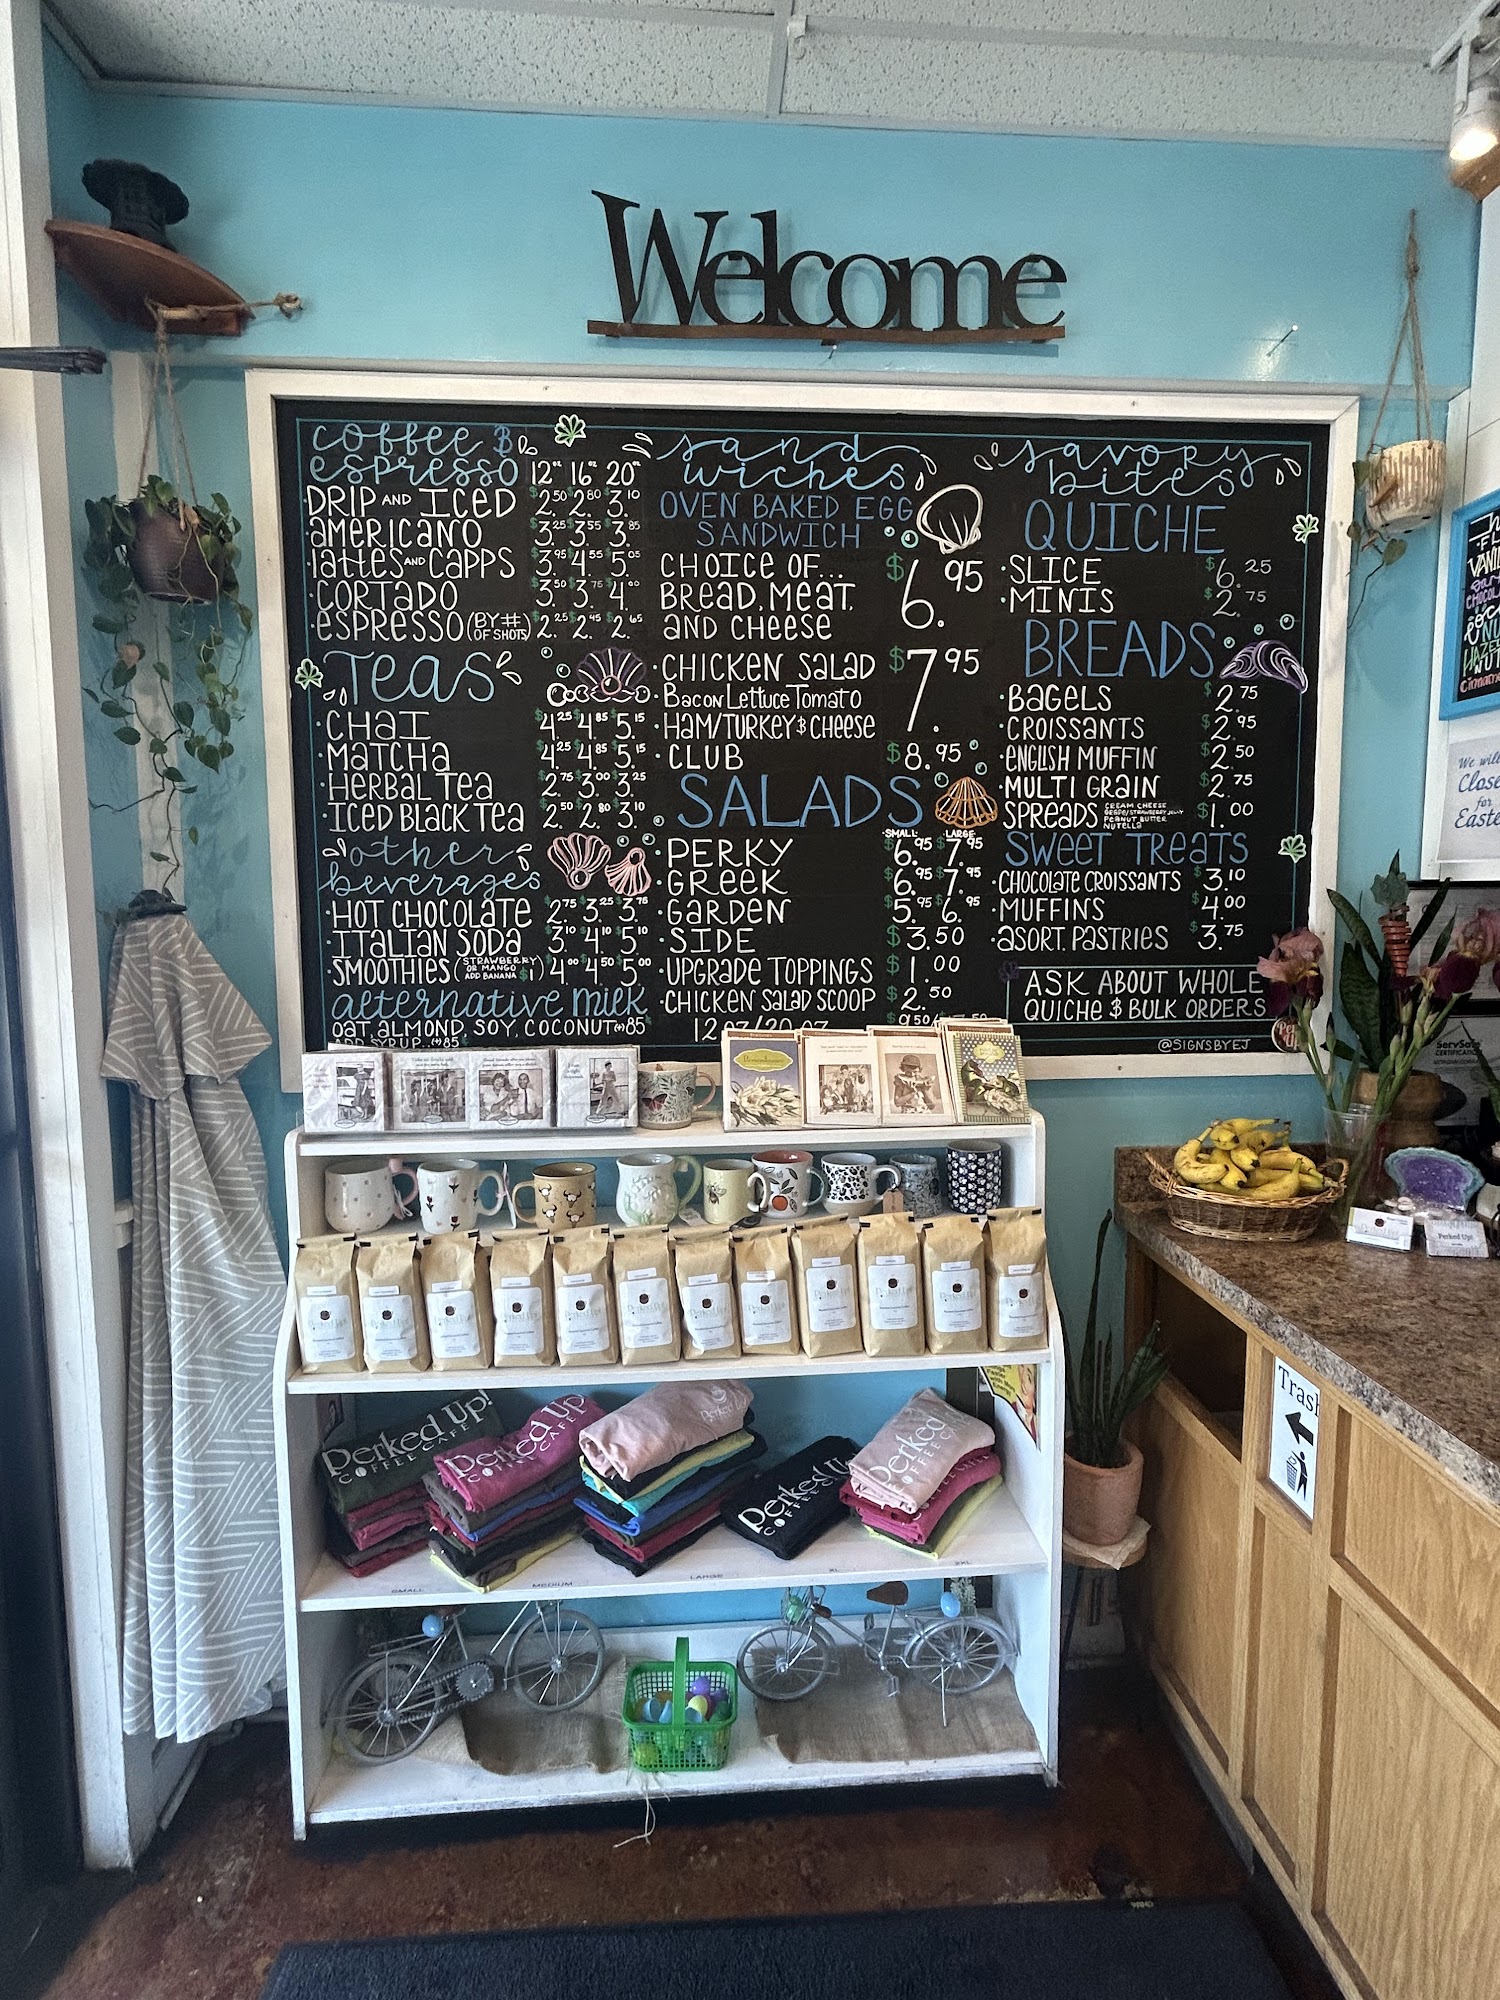 Welcome
coffee &
espresso 12oz 16oz 20oz
DRIP AND ICED $2.50 $2.80 $3.10
americano $3.25 $3.55 $3.85
lattes AND CAPPS $3.95 $4.55 $5.05
CORTADO $3.50 $3.75 $4.00
espresso (BY # OF SHOTS) $2.25 $2.45 $2.65
Teas
CHAI $4.25 $4.85 $5.15
MATCHA $4.25 $4.85 $5.15
HERBAL TEA $2.75 $3.00 $3.25
ICED BLACK TEA $2.50 $2.80 $3.10
other
beverages
HOT CHOCOLATE $2.75 $3.25 $3.75
ITALIAN SODA $3.10 $4.10 $5.10
SMOOTHIES (STRAWBERRY OR MANGO ADD BANANA $1) $4.00 $4.50 $5.00
alternative milk
OAT, ALMOND, SOY, COCONUT (+) 85
ADD SYRUP..(+) 85
sand
wiches
OVEN BAKED EGG
SANDWICH
CHOICE OF...
BREAD, MEAT,
AND CHEESE
$6.95
CHICKEN SALAD
Bacon Lettuce Tomato
HAM/TURKEY & CHEESE
$7.95
CLUB $8.95
SALADS
SMALL: LARGE:
PERKY $6.95 $7.95
GREEK $6.95 $7.95
GARDEN $5.95 $6.95
SIDE $3.50
UPGRADE TOPPINGS $1.00
CHICKEN SALAD SCOOP $2.50
savory
bites
QUICHE
SLICE $6.25
MINIS $2.75
BREADS
BAGELS $2.75
CROISSANTS $2.95
ENGLISH MUFFIN $2.50
MULTI GRAIN $2.75
SPREADS CREAM CHEESE PEANUT BUTTER NUTELLA $1.00
SWEET TREATS
CHOCOLATE CROISSANTS $3.10
MUFFINS $4.00
ASORT. PASTRIES $3.75
ASK ABOUT WHOLE
QUICHE & BULK ORDERS
@SIGNSBYEJ
We will
Close
for
Easte
ServSafe
CERTIFICATION
Perked Up!
Perked Up!
COFFEE CAFE
Perked Up
COFFEE CAFE
Perked Up
Perked Up
COFFEE CAFE
Perked
COFFEE CA
SMALL
MEDIUM
LARGE
XL
2XL
Trash